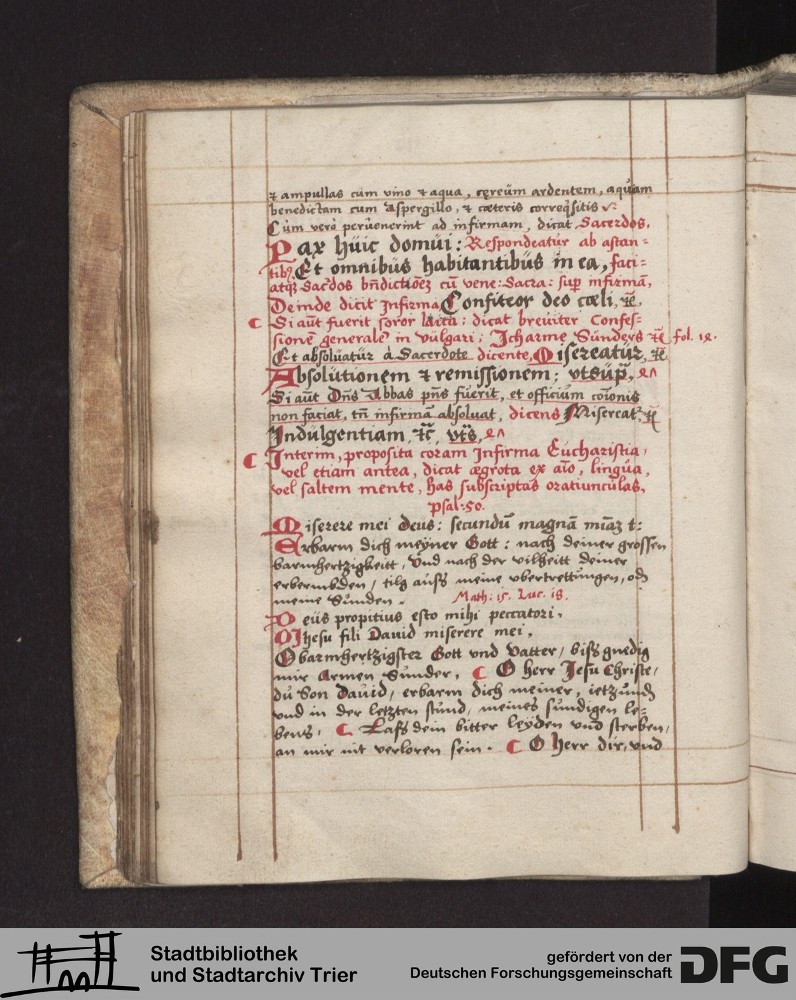 & ampullas cum vino & aqua, cereum ardentem, aquam
benedictam cum aspergillo, & cæteris correqsitis
Cum vero peruenerint ad infirmam, dicat Sacerdos.
Pax huic domui: Respondeatur ab astan=
tibꝫ Et omnibus habitantibus in ea, faci=
atqꝫ Sacdos bndictioēz cū vene: Sacra: sup infirmā,
Deinde dicit Infirma Confiteor deo cœli, &c̄.
Si aūt fuerit soror laica: dicat breuiter Confes=
sionē generalē in vulgari: Ich arme Sunders &c̄ fol. 12.
Et absoluatur à Sacerdote dicente, Misereatur, &c̄
Absolutionem & remissionem; vt sup̄,
Si aūt Dn̄s Abbas pn̄s fuerit, et officium coīonis
non faciat, tn̄ infirmā absoluat, dicens Misereat, &c̄
Indulgentiam, &c̄, vts̄,
Interim, proposita coram Infirma Eucharistia,
vel etiam antea, dicat ægrota ex aīo, lingua,
vel saltem mente, has subscriptas oratiunculas.
psal: 50.
Miserere mei Deus: secundū magnā miāꝫ t:
Erbarm dich meyner Gott: nach deiner grossen
barmhertzigkeitt, Und nach der vilheitt deiner
erbermbden / tilg auss meine vbertrettungen, oder
meine Sunden. Math: 15. Luc. 18.
Deus propitius esto mihi peccatori.
O Jhesu fili Dauid miserere mei.
O barmhertzigster Gott vnd Vatter / biss gnedig
mir Armen Sunder. O herr Jesu Christe /
du Son Dauid / erbarm dich meiner, ietzund
vnd in der letzten stund, meines sundigen le=
bens. Lass dein bitter leyden vnd sterben,
an mir nit verloren sein. O herr dir, vnd
Stadtbibliothek
und Stadtarchiv Trier
gefördert von der
Deutschen Forschungsgemeinschaft
DFG